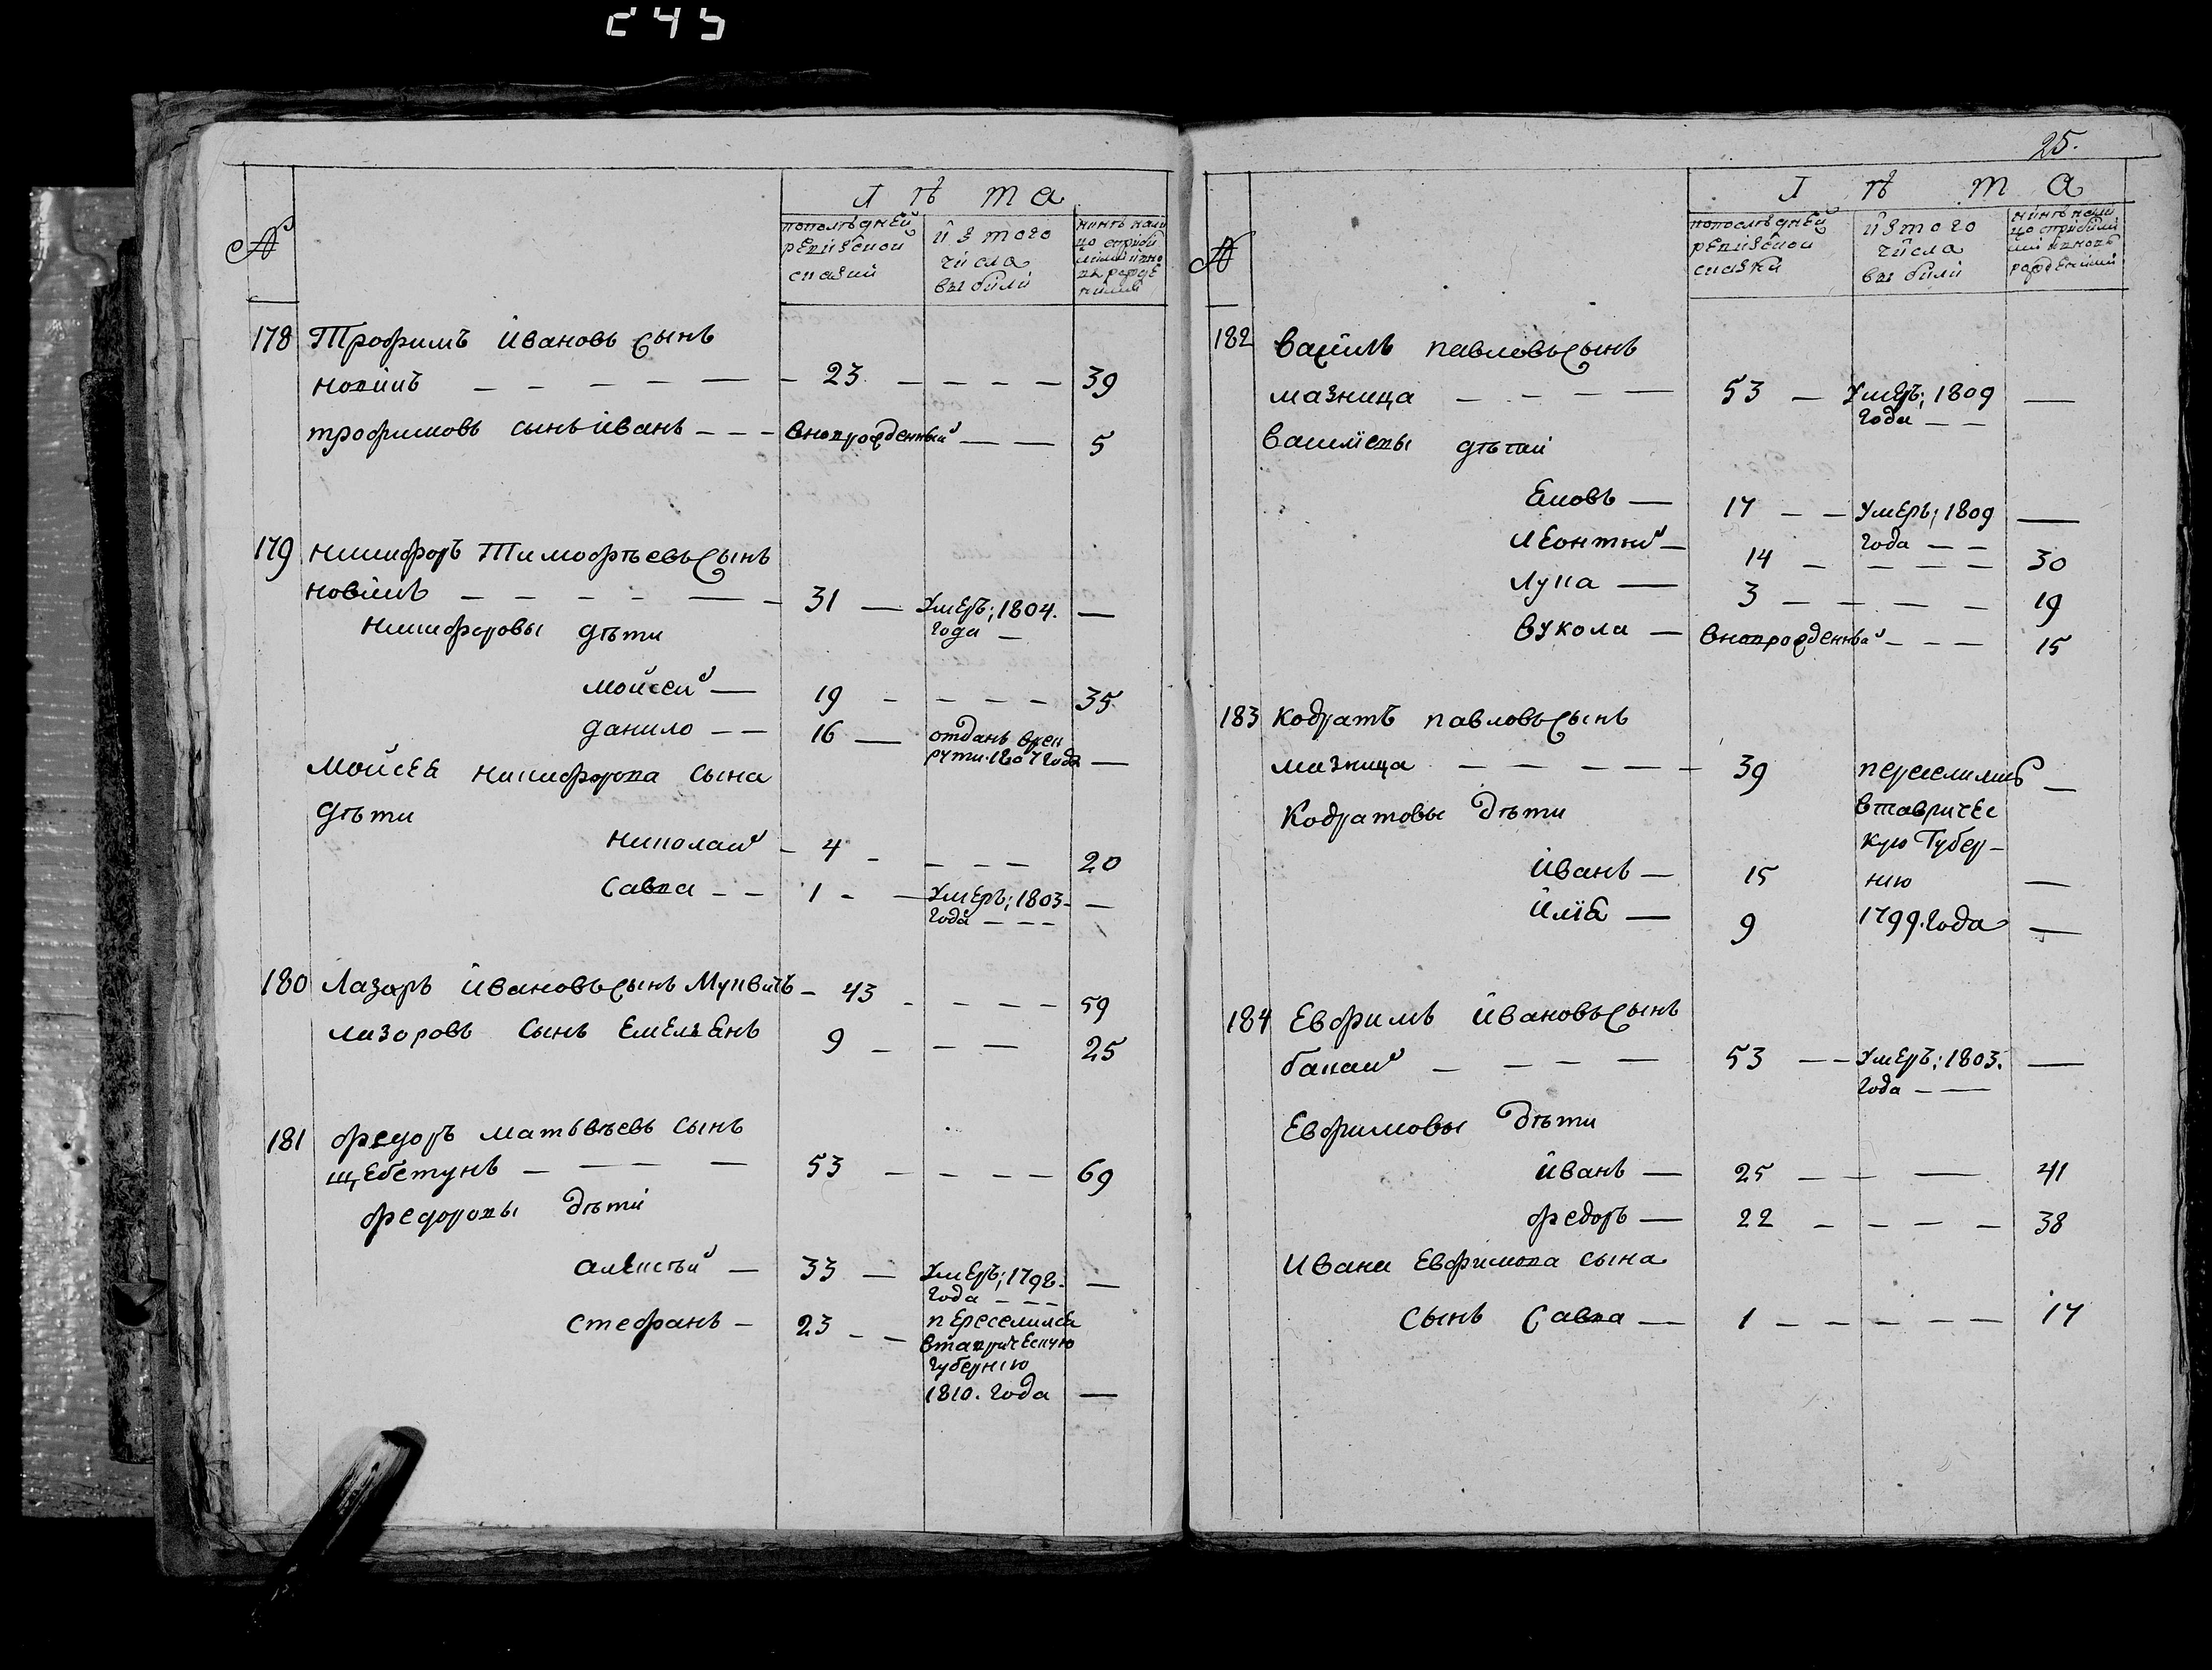 245
Лѣта
№
пополѣдней
ревизской
сказкй
йзтого
числа
выбили
нинѣ нали
цо спрйби
лими йнно
въ рожде
ними
178 Трофимъ йвановъ сынъ
новикъ — 23 — 39
трофимовъ сынъ йванъ — вноврожденный — 5
179 никифоръ Тимофѣевъ сынъ
новикъ — 31 — Умеръ; 1804.
года —
никифоровы дѣти
мойсей — 19 — 35
данило — 16 — отданъ врек
рути. 1807 года —
Мойсея никифорова сына
дѣти
николай — 4 — 20
Савка — 1 — Умеръ; 1803 —
года —
180 Лазаръ йвановъ сынъ Муквичъ — 43 — 59
лазоровъ сынъ Емелѣянъ 9 — 25
181 федоръ матвѣевъ сынъ
щебетунъ — 53 — 69
федоровы дѣти
алексѣй — 33 — Умеръ; 1798.
года —
стефанъ — 23 — переселился
втаврическую
губернію
1810. года —
25.
Лѣта
№
попослѣдней
ревизской
сказки
йзтого
числа
выбили
нинѣ нали
цо спрйбили
ми йвновъ
рорденими
182 василь павловъ сынъ
мазница — 53 — Умеръ; 1809 —
года —
василевы дѣтки
Яковъ — 17 — Умеръ; 1809 —
года —
леонтий — 14 — 30
лука — 3 — 19
вукола — вноврожденный — 15
183 кодратъ павловъ сынъ
мазница — 39 переселилис —
Кодратовы дѣти втавричес
кую Губер-
йванъ — 15 нию —
йлія — 9 1799. года —
184 Евфимъ йвановъ сынъ
бакай — 53 — Умеръ; 1803. —
года —
Евфимовы дѣти
йванъ — 25 — 41
федоръ — 22 — 38
йвана Евфимова сына
сынъ Савка — 1 — 17